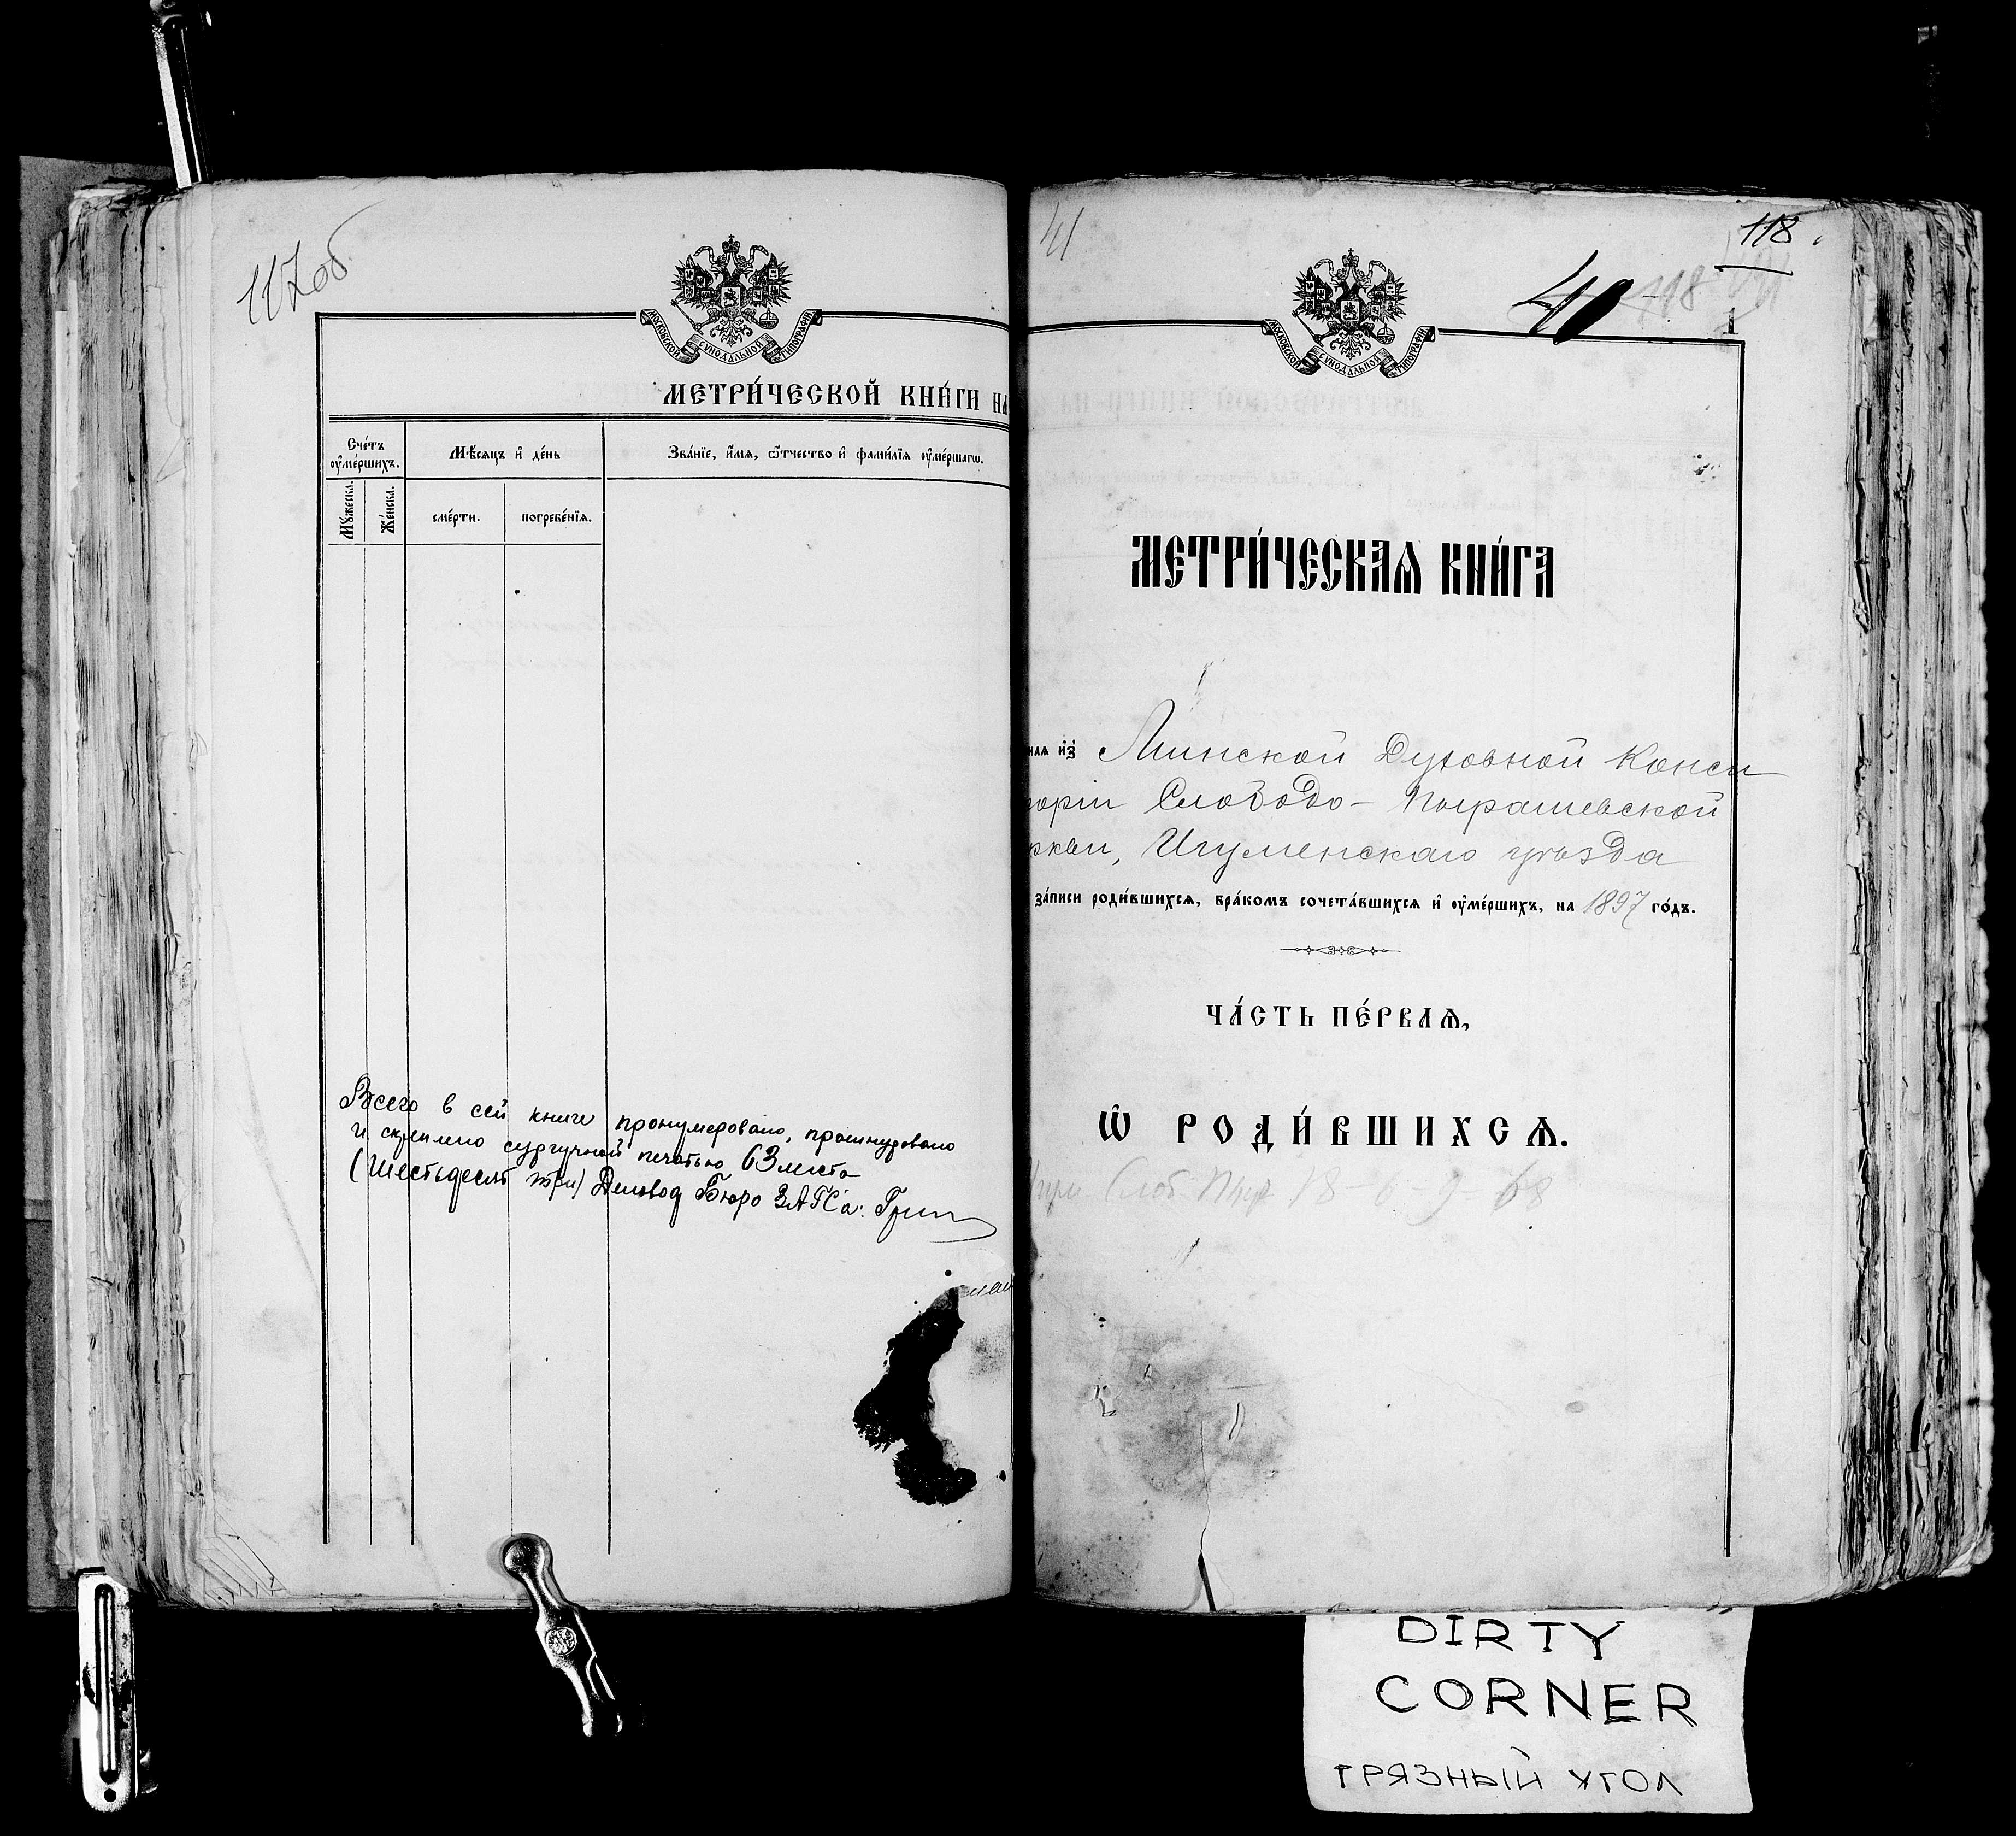 117об
МОСКОВСКОЙ СѴНОДАЛЬНОЙ ТИПОГРАФІИ
МЕТРИ́ЧЕСКОЙ КНИ́ГИ НА
Сче́тъ ᲂу҆ме́ршихъ.
Мѣ́сяцъ и҆ де́нь
Зва́нїе, и҆́мя, ѻ҆́тчество и҆ фами́лїя ᲂу҆ме́ршагѡ.
Мꙋ́жеска.
Же́нска.
сме́рти.
погребе́нїя.
Всего в сей книге пронумеровано, прошнуровано
и скреплено сургучной печатью 63 листа
(Шестьдесят три) Деловод Бюро ЗАГСа:
41
118
41
118
1
МОСКОВСКОЙ СѴНОДАЛЬНОЙ ТИПОГРАФІИ
МЕТРИ́ЧЕСКАѦ КНИ́ГА
ная и҆з̾ Минской Духовной Конси
торіи Слободо-Пырашевской
ркви, Игуменскаго уѣзда
за́писи роди́вшихсѧ, бра́комъ сочета́вшихсѧ и҆ ᲂу҆ме́ршихъ, на 1897 го́дъ.
ЧА́СТЬ ПЕ́РВАѦ,
Ѡ҆ РОДИ́ВШИХСѦ.
Слоб Пыр
DIRTY
CORNER
ГРЯЗНЫЙ УГОЛ